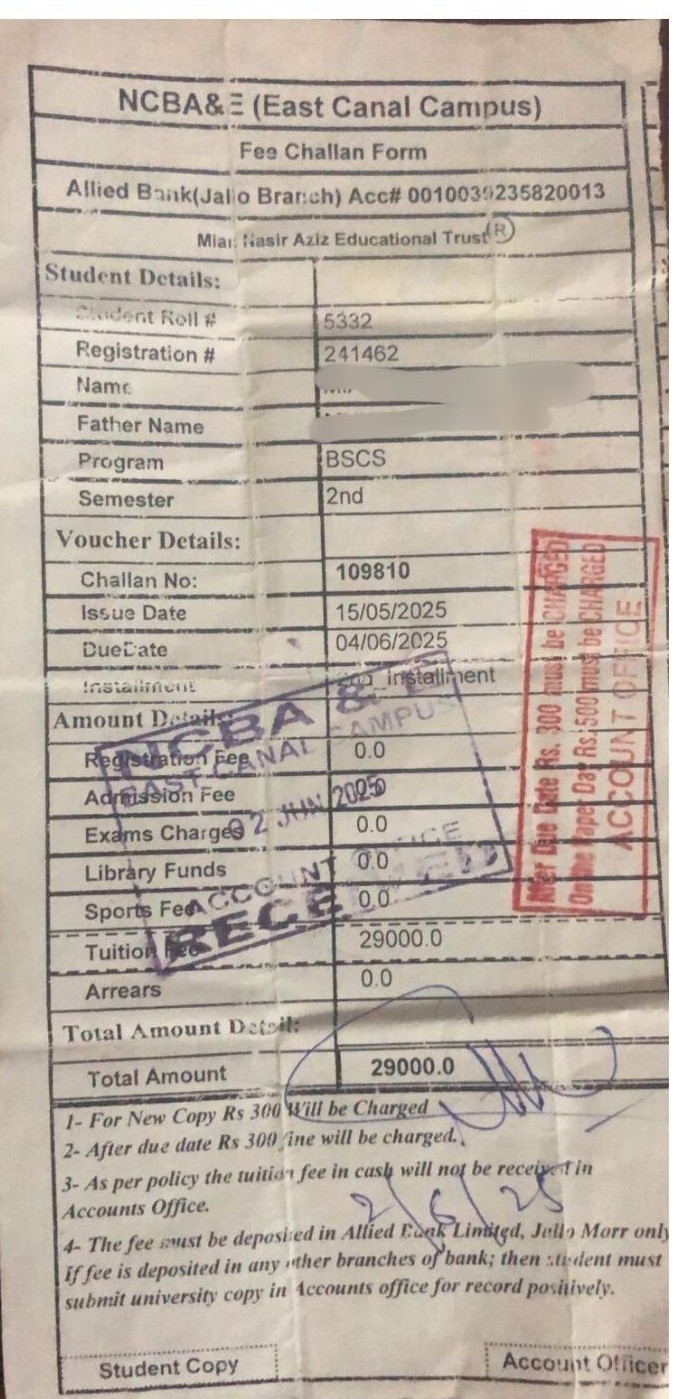 NCBA&E (East Canal Campus)
Fee Challan Form
Allied Bank(Jallo Branch) Acc# 0010039235820013
Mian Nasir Aziz Educational Trust ®
Student Details:
Student Roll # 5332
Registration # 241462
Name
Father Name
Program BSCS
Semester 2nd
Voucher Details:
Challan No: 109810
Issue Date 15/05/2025
DueDate 04/06/2025
Installment 2nd_Installment
Amount Details:
Registration Fee 0.0
Admission Fee
Exams Charges 0.0
Library Funds 0.0
Sports Fee 0.0
Tuition Fee 29000.0
Arrears 0.0
Total Amount Detail:
Total Amount 29000.0
NCBA & E
EAST CANAL CAMPUS
02 JUN 2025
ACCOUNT OFFICE
RECEIVED
After Due Date Rs. 300 must be CHARGED
On the Paper Day Rs: 500 must be CHARGED
ACCOUNT OFFICE
1- For New Copy Rs 300 Will be Charged
2- After due date Rs 300 fine will be charged.
3- As per policy the tuition fee in cash will not be received in
Accounts Office.
2/6/25
4- The fee must be deposited in Allied Bank Limited, Jallo Morr only
if fee is deposited in any other branches of bank; then student must
submit university copy in Accounts office for record positively.
Student Copy
Account Officer